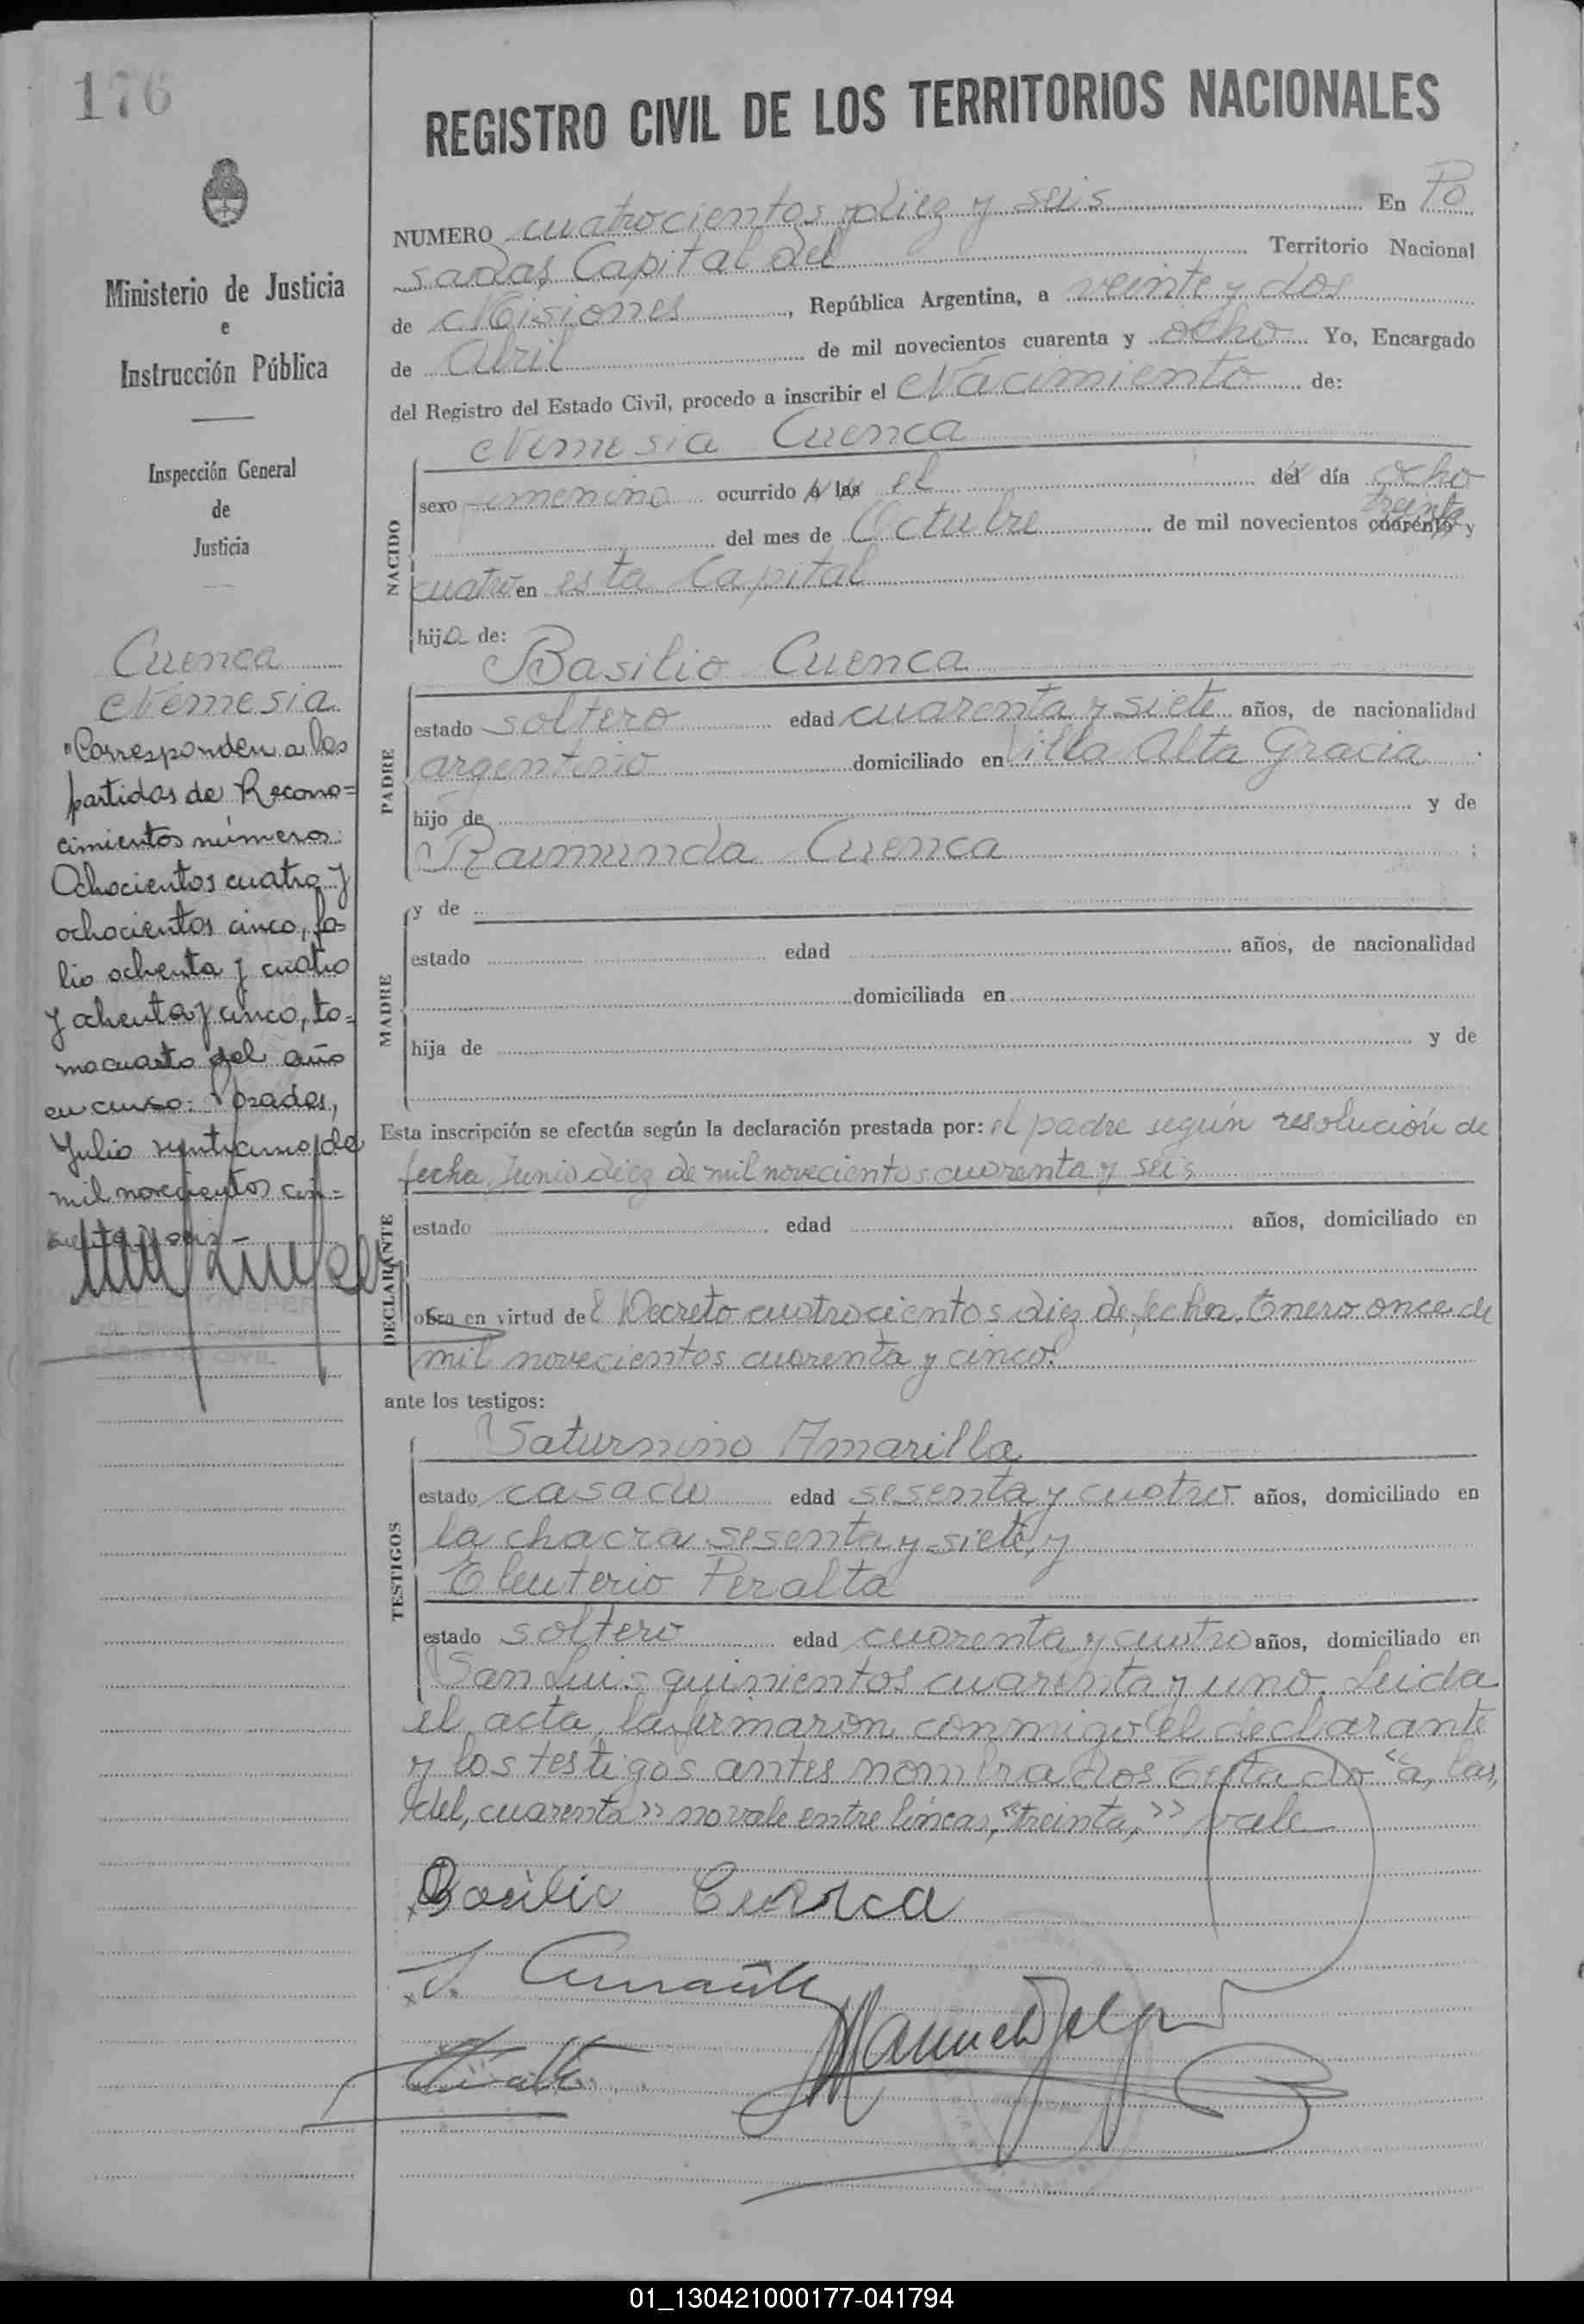 176
REGISTRO CIVIL DE LOS TERRITORIOS NACIONALES
Ministerio de Justicia
e
Instrucción Pública
Inspección General
de
Justicia
Cuenca
Nemesia
"Corresponden a las
partidas de Recono=
cimientos números:
Ochocientos cuatro y
ochocientos cinco, fo=
lio ochenta y cuatro
y ochenta y cinco, to=
mo cuarto del año
en curso: Posadas,
Julio veintiuno de
mil novecientos cin=
NUMERO cuatrocientos y diez y seis En Po
sadas, Capital del Territorio Nacional
de Misiones, República Argentina, a veinte y dos
de Abril de mil novecientos cuarenta y ocho Yo, Encargado
del Registro del Estado Civil, procedo a inscribir el Nacimiento de:
Nemesia Cuenca
NACIDO
sexo femenino ocurrido a las el del día ocho
treinta
del mes de Octubre de mil novecientos cuarenta y
cuatro en esta Capital
hija de:
Basilio Cuenca
PADRE
estado soltero edad cuarenta y siete años, de nacionalidad
argentino domiciliado en Villa Alta Gracia
hijo de y de
Raimunda Cuenca ;
MADRE
y de
estado edad años, de nacionalidad
domiciliada en
hija de y de
Esta inscripción se efectúa según la declaración prestada por: el padre según resolución de
fecha Junio diez de mil novecientos cuarenta y seis
DECLARANTE
estado edad años, domiciliado en
obra en virtud del Decreto cuatrocientos diez de fecha Enero once de
mil novecientos cuarenta y cinco.
ante los testigos:
TESTIGOS
Saturnino Amarilla
estado casado edad sesenta y cuatro años, domiciliado en
la chacra sesenta y siete, y
Eleuterio Peralta
estado soltero edad cuarenta y cuatro años, domiciliado en
San Luis quinientos cuarenta y uno. Leida
el acta, la firmaron conmigo el declarante
y los testigos antes nombrados Testado "a, las,
del, cuarenta" no vale entre líneas, "treinta," vale
Basilio Cuenca
S. Amarilla
01_130421000177-041794